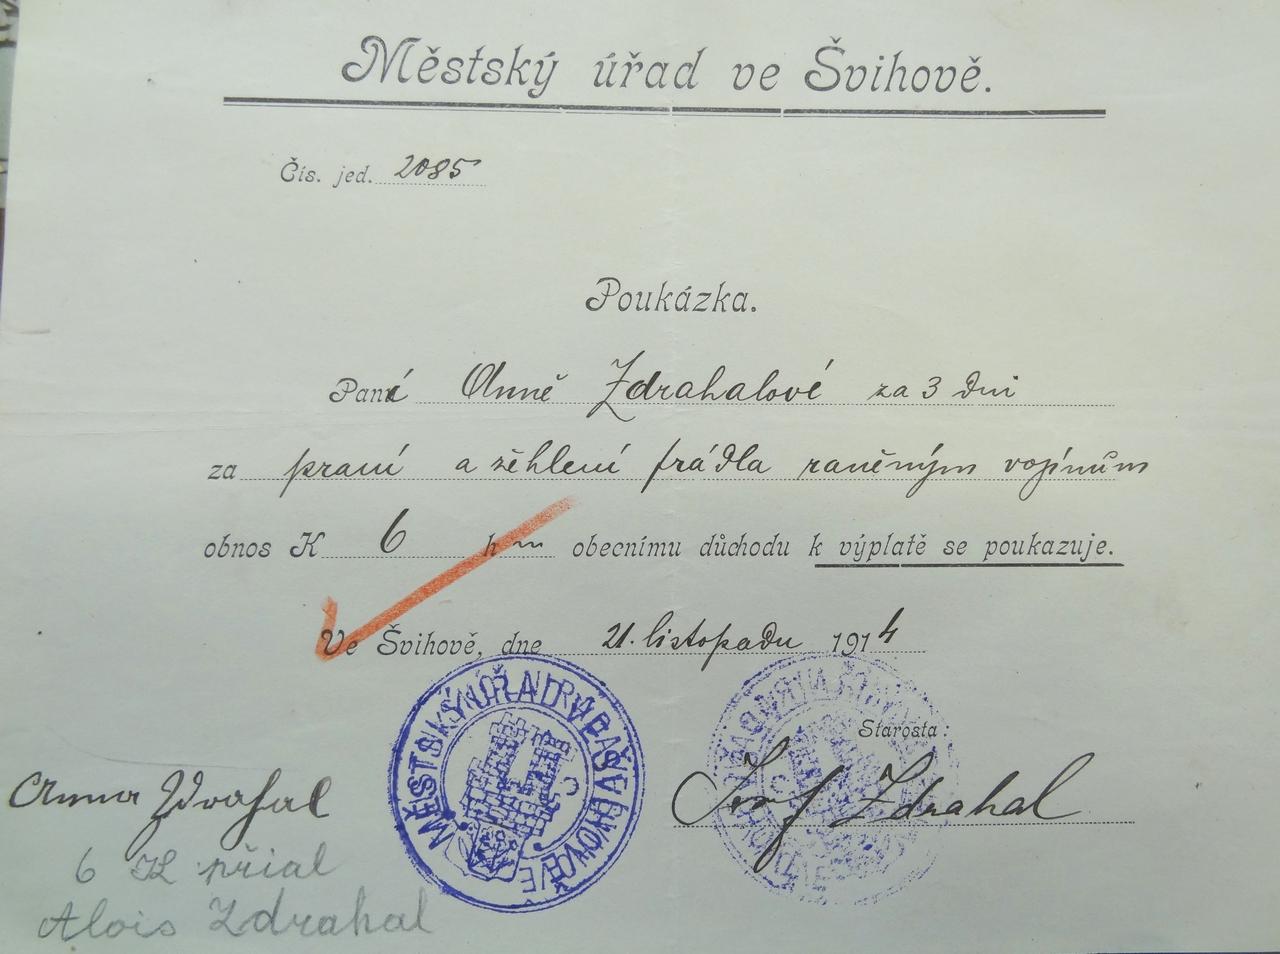 Městský úřad ve Švihově.
Čís. jed. 2085
Poukázka.
Paní Anně Zdrahalové za 3 dni
za praní a žěhlení prádla raněným vojínům
obnos K 6 h obecnímu důchodu k výplatě se poukazuje.
Ve Švihově, dne 21. listopadu 1914
Starosta:
Josef Zdrahal
Anna Zdrahal
6 K přial
Alois Zdrahal
MĚSTSKÝ ÚŘAD